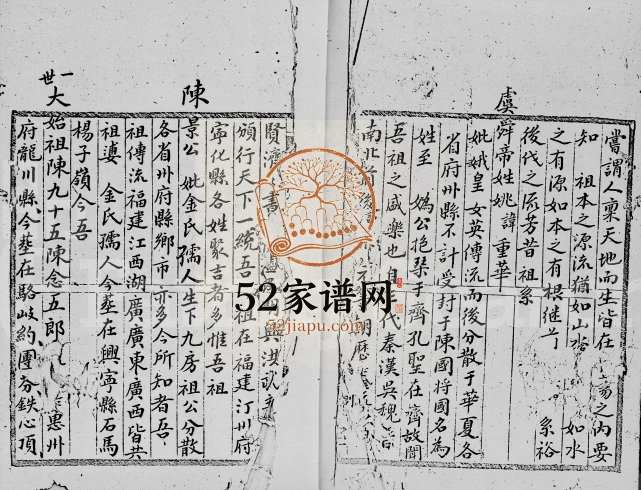 虞
嘗謂人稟天地而生皆在 之內要
知 祖本之源流猶如山 如水
之有源如本之有根継 系裕
後代之 芳昔祖系
舜帝姓姚諱重華
妣娥皇女英傳流而後分散于華夏各
省府州縣不計受封于陳國將國名為
姓至 媯公抱琹于齊孔聖在齊故聞
吾祖之咸樂也自 代秦漢吳魏晉
南北 後
賢 書 與洪武
頒行天下一統吾 祖在福建汀州府
寧化縣各姓聚吉者多惟吾祖
陳
景公 妣金氏孺人生下九房祖公分散
各省州府縣鄉市亦多今所知者吾
祖傳流福建江西湖廣廣東廣西皆共
祖婆 金氏孺人今塟在興寧縣石馬
楊子嶺今吾
一世
大始祖陳九十五陳念五郎 惠州
府龍川縣今塟在駱岐約團 鉄心頂
52家谱网
52jiapu.com